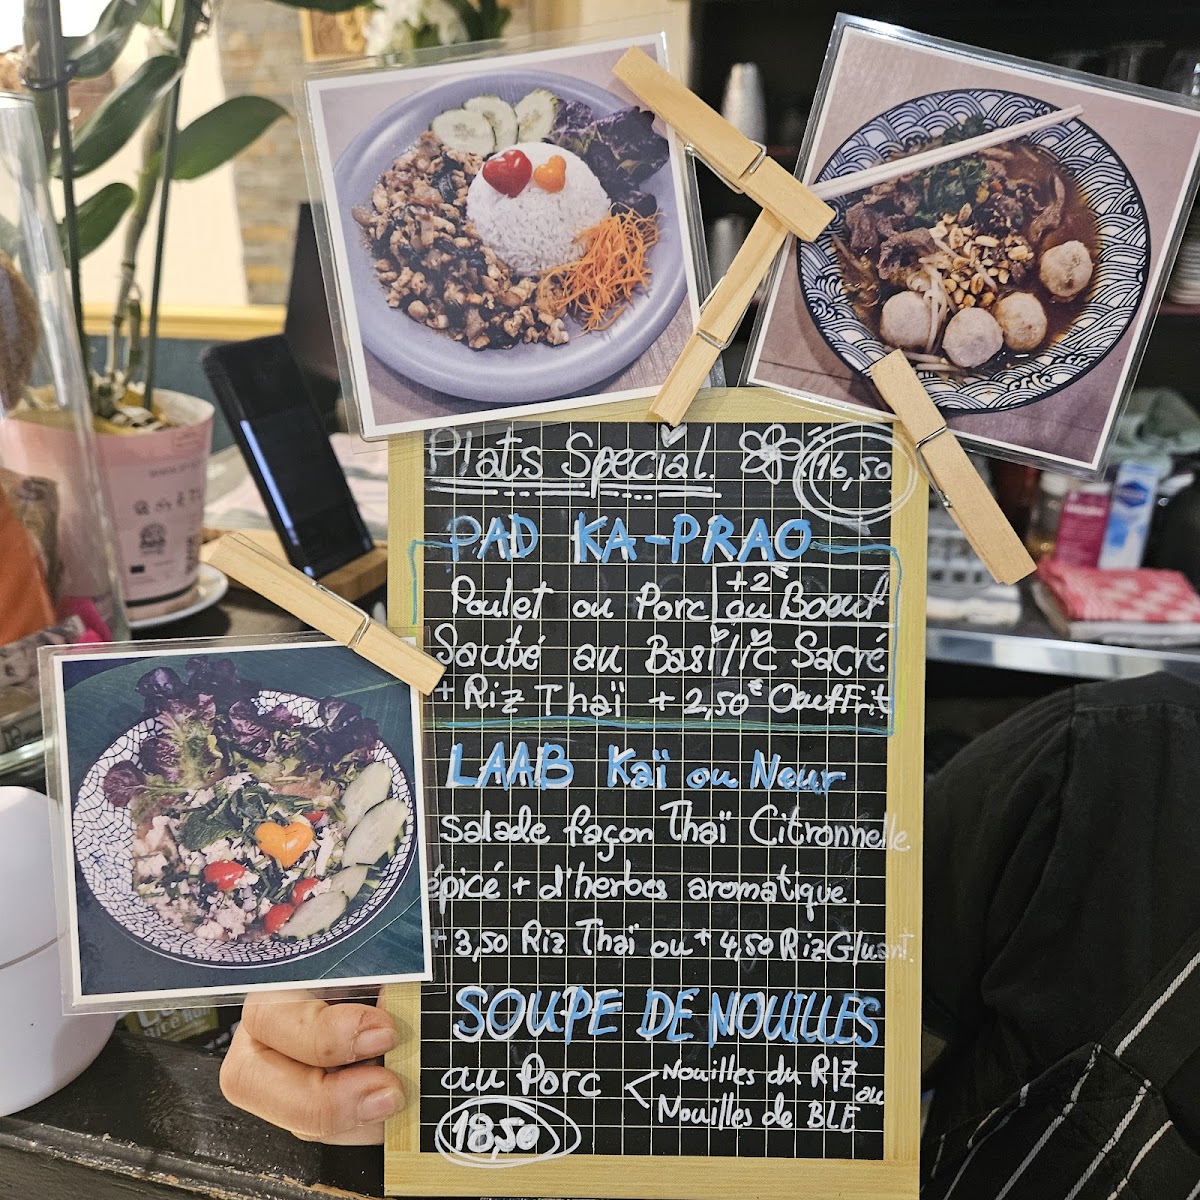 Plats Spécial. 16,50
PAD KA-PRAO
Poulet ou Porc +2€ ou Boeuf
Sauté au Basilic Sacré
+ Riz Thaï + 2,50€ Oeuf Frit
LAAB Kaï ou Neur
salade façon Thaï Citronnelle
épicé + d'herbes aromatique.
+ 3,50 Riz Thaï ou + 4,50 Riz Gluant.
SOUPE DE NOUILLES
au Porc < Nouilles du RIZ ou
Nouilles de BLE
18,50